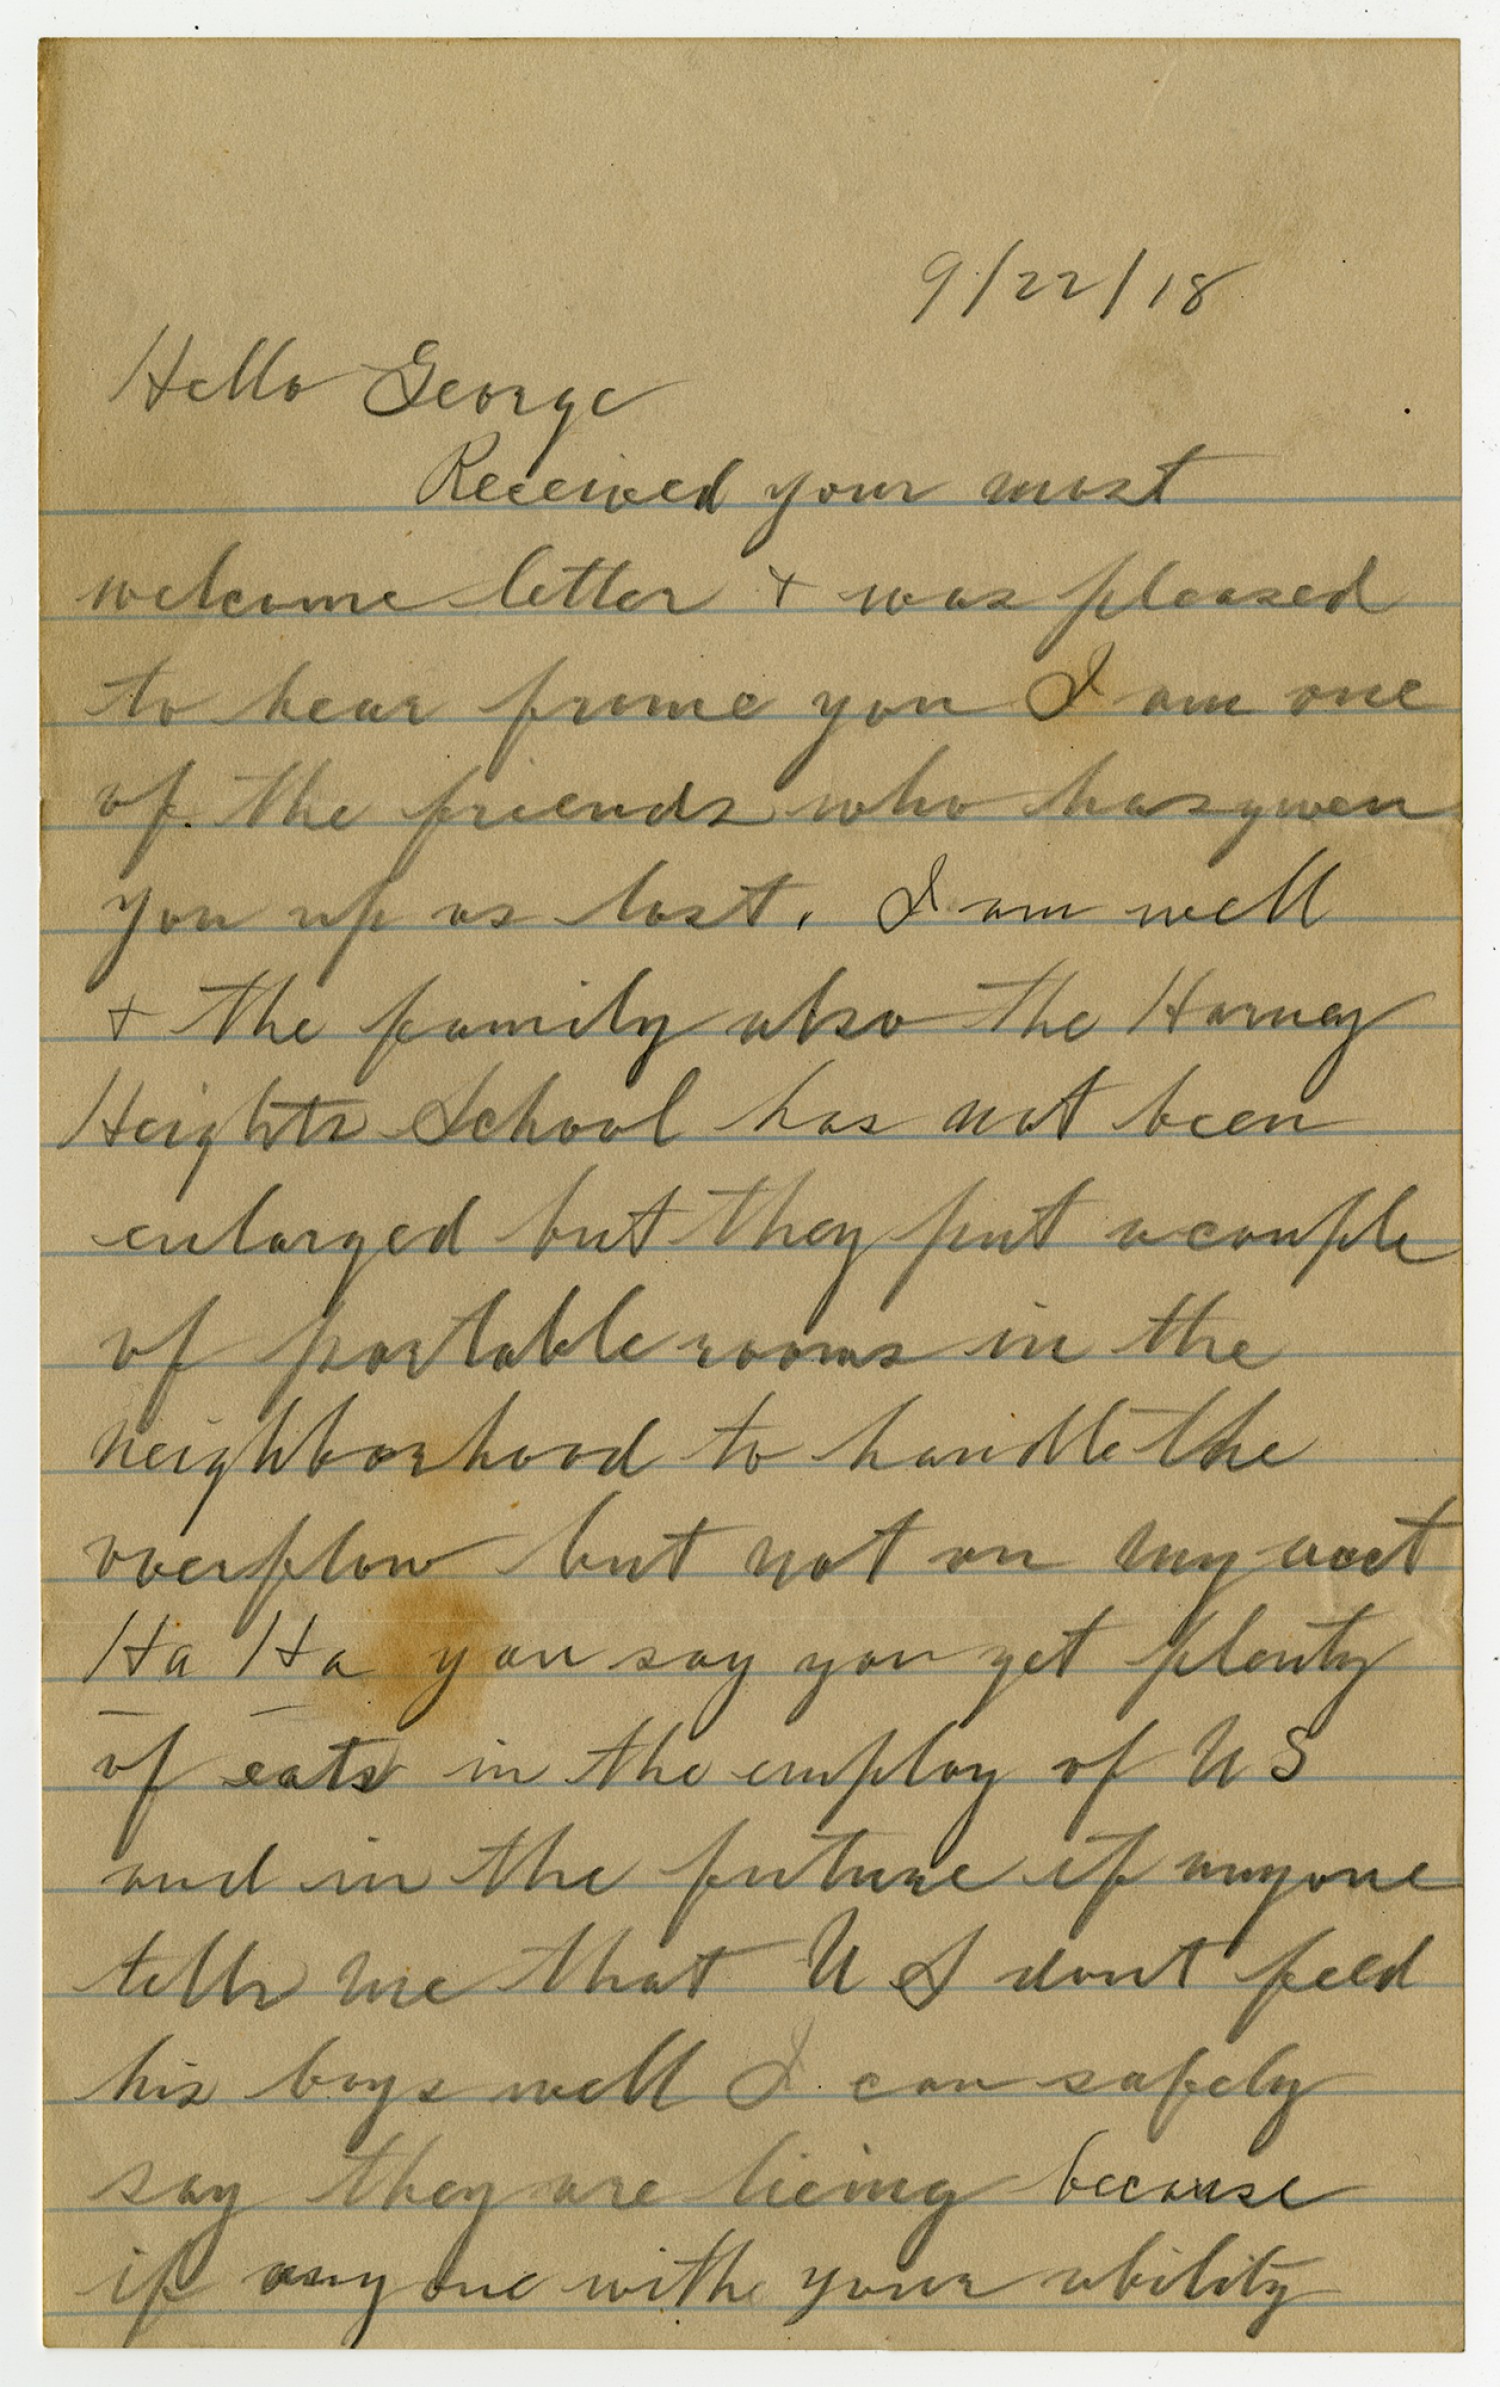 9/22/18
Hello George
Received your most
welcome letter + was pleased
to hear frome you I am one
of the friends who has given
you up as lost. I am well
+ the family also the Harney
Heights School has not been
enlarged but they put a couple
of portable rooms in the
neighborhood to handle the
overflow but not on my acct
Ha Ha you say you get plenty
of eats in the employ of U S
and in the future if anyone
tells me that U S dont feed
his boys well I can safely
say they are lieing because
if any one withe your ability